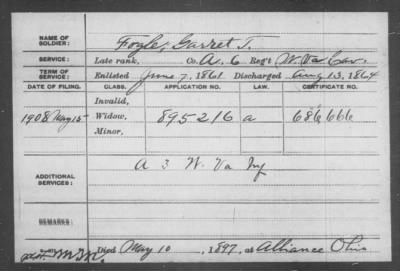 NAME OF SOLDIER: Fogle, Garret T.
SERVICE: Late rank, Co. A. 6 Reg't W. Va Cav.
TERM OF SERVICE: Enlisted June 7, 1861 Discharged Aug 13, 1864
DATE OF FILING. CLASS. APPLICATION NO. LAW. CERTIFICATE NO.
Invalid,
1908 May 15 Widow, 895216 a 686666
Minor,
ADDITIONAL SERVICES: A 3 W. Va Inf
REMARKS:
Died May 10, 1897, at Alliance Ohio